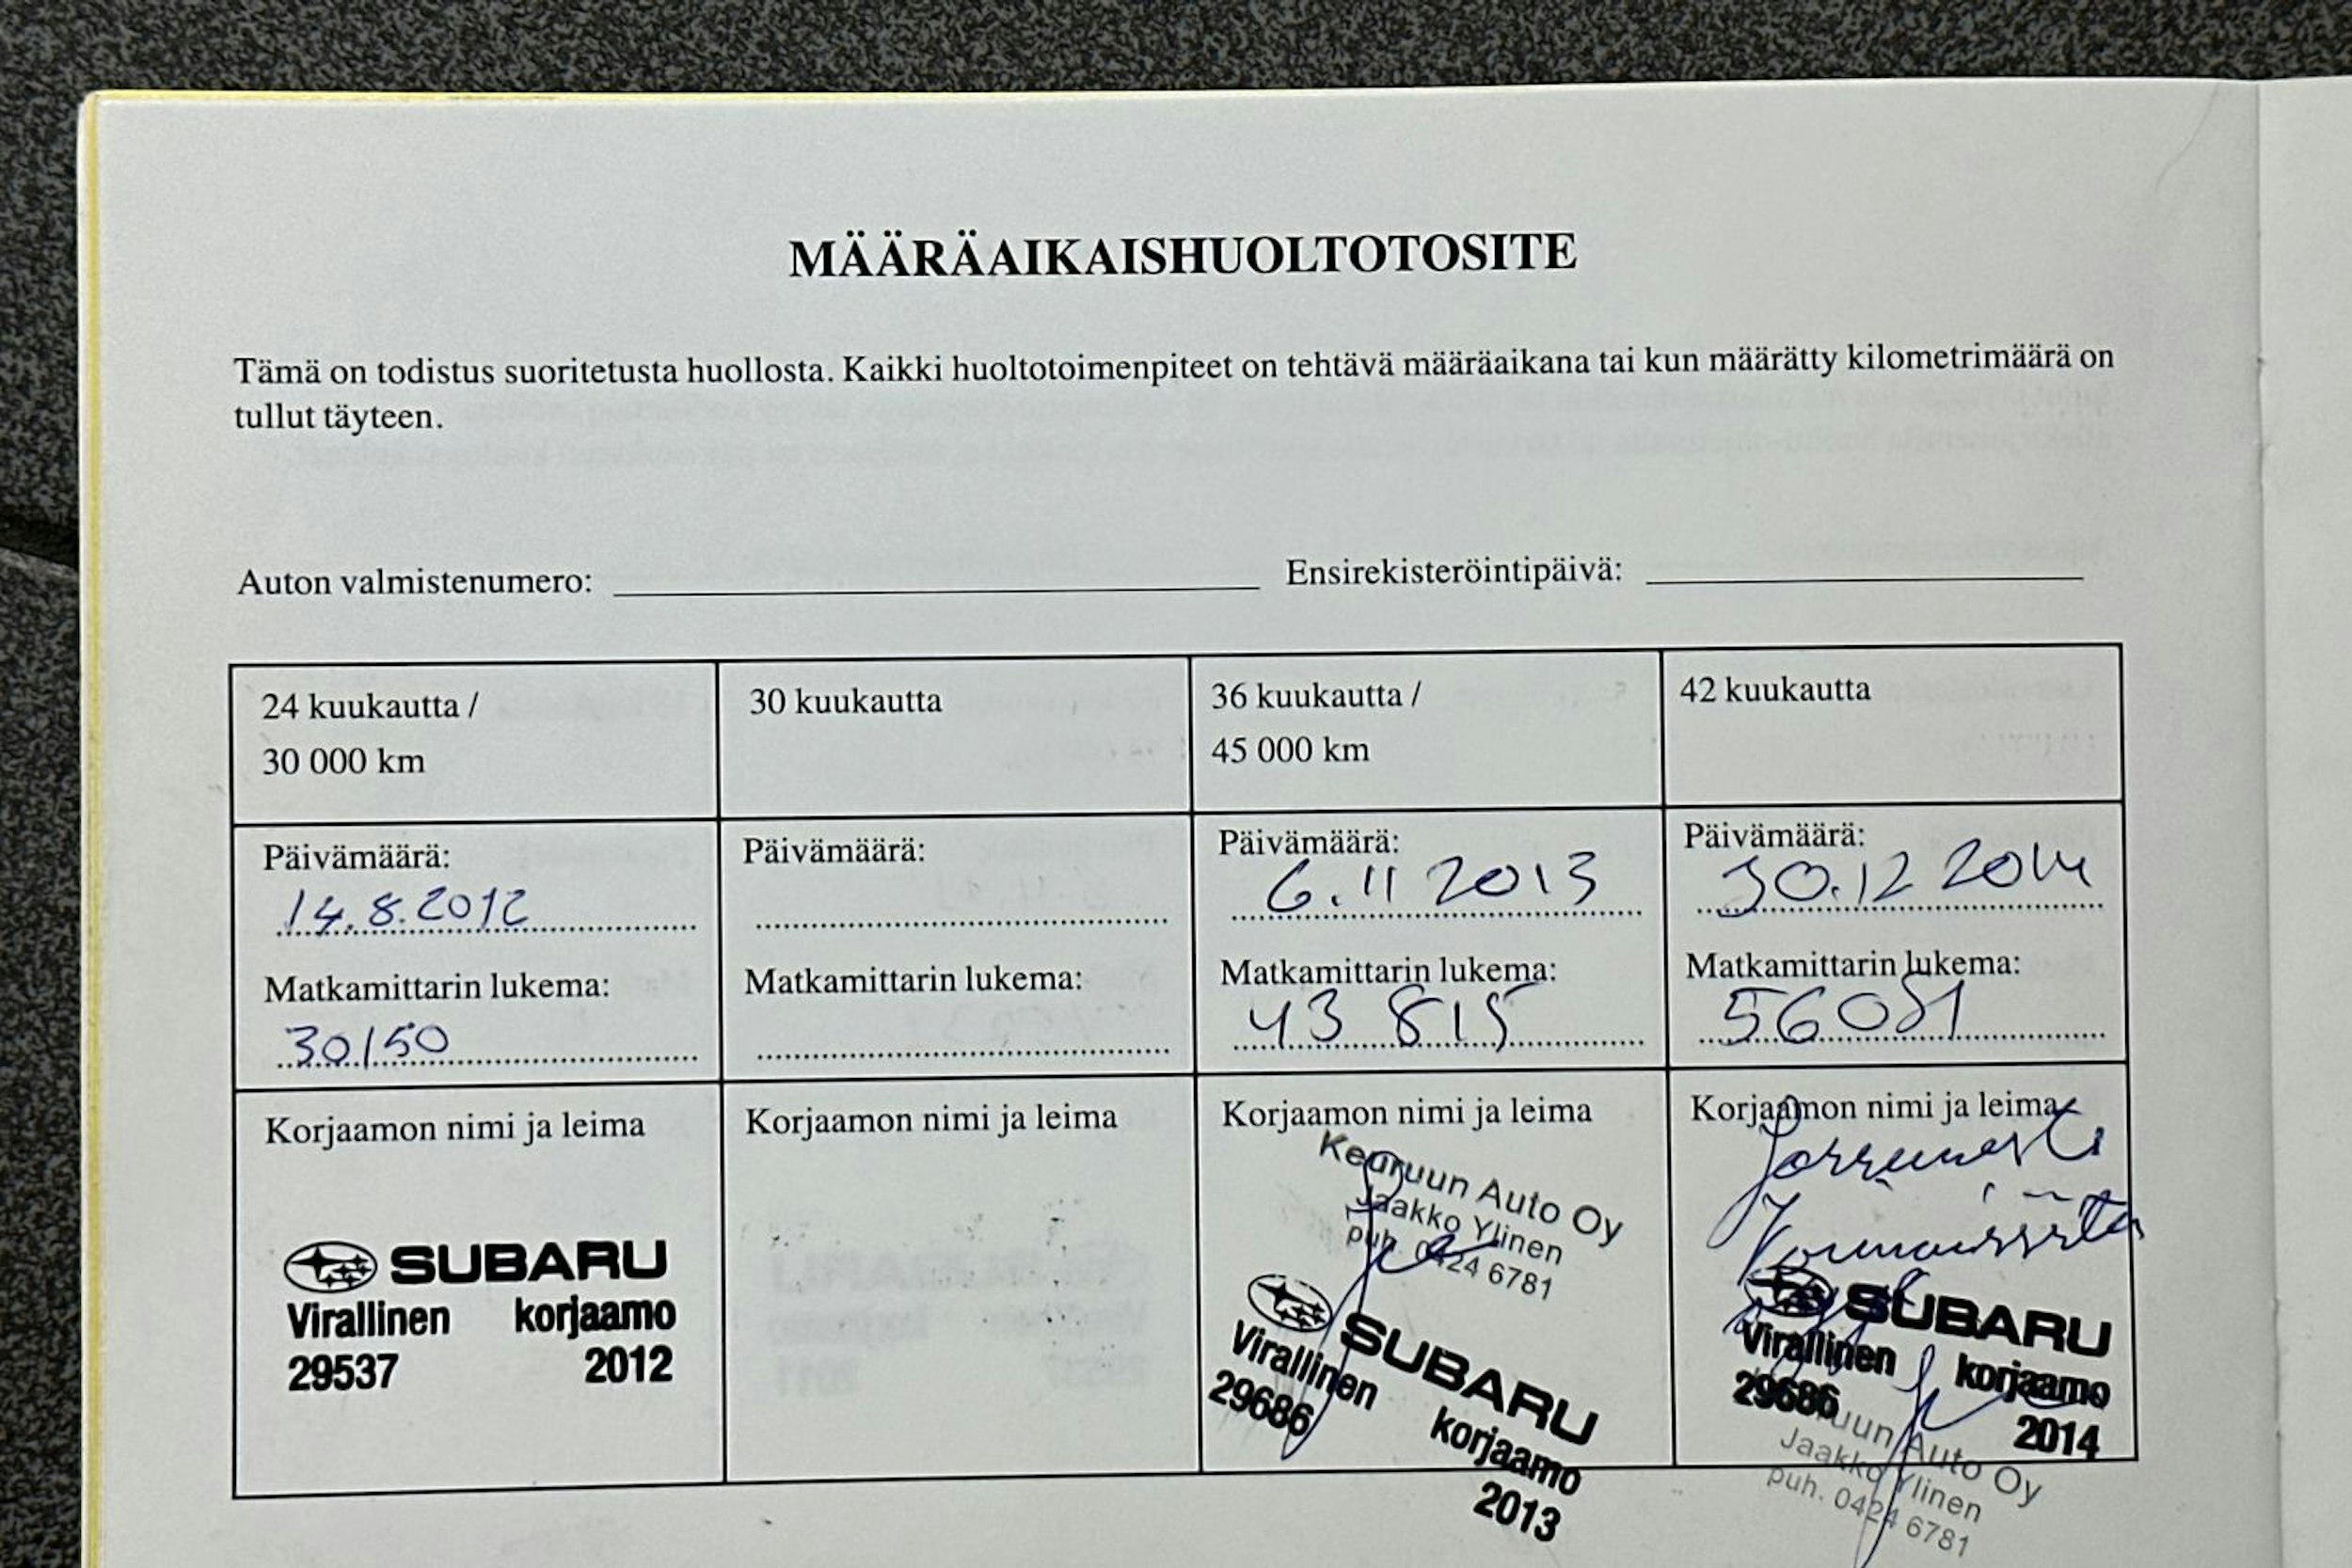 MÄÄRÄAIKAISHUOLTOTOSITE
Tämä on todistus suoritetusta huollosta. Kaikki huoltotoimenpiteet on tehtävä määräaikana tai kun määrätty kilometrimäärä on
tullut täyteen.
Auton valmistenumero:
Ensirekisteröintipäivä:
24 kuukautta /
30 000 km
Päivämäärä:
14.8.2012
Matkamittarin lukema:
30150
Korjaamon nimi ja leima
SUBARU
Virallinen korjaamo
29537 2012
30 kuukautta
Päivämäärä:
Matkamittarin lukema:
Korjaamon nimi ja leima
36 kuukautta /
45 000 km
Päivämäärä:
6.11 2013
Matkamittarin lukema:
43 815
Korjaamon nimi ja leima
Keuruun Auto Oy
Jaakko Ylinen
puh. 0424 6781
SUBARU
Virallinen korjaamo
29686 2013
42 kuukautta
Päivämäärä:
30.12 2014
Matkamittarin lukema:
56081
Korjaamon nimi ja leima
SUBARU
Virallinen korjaamo
29686 2014
Keuruun Auto Oy
Jaakko Ylinen
puh. 0424 6781